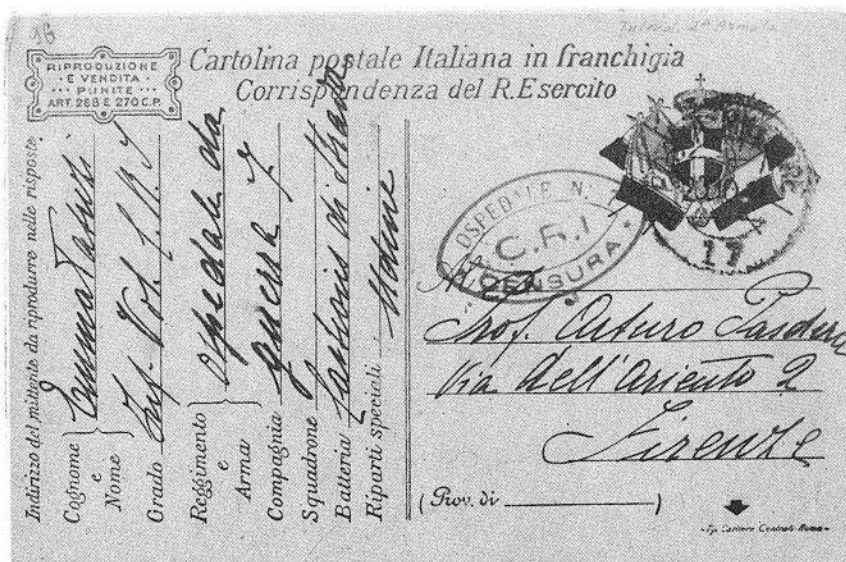 96
RIPRODUZIONE
E VENDITA
PUNITE
ART. 268 E 270 C.P.
Cartolina postale Italiana in franchigia
Corrispondenza del R. Esercito
Indirizzo del mittente da riprodurre nelle risposte
Cognome e Nome Emma
Grado Inf. Vol. C.R.I
Reggimento e Arma ospedale da
Compagnia guerra 7
Squadrone
Batteria di Strada
Riparti speciali Udine
OSPEDALE N.
C.R.I
CENSURA
17
Prof. Arturo
Via dell'Ariento 2
Firenze
(Prov. di )